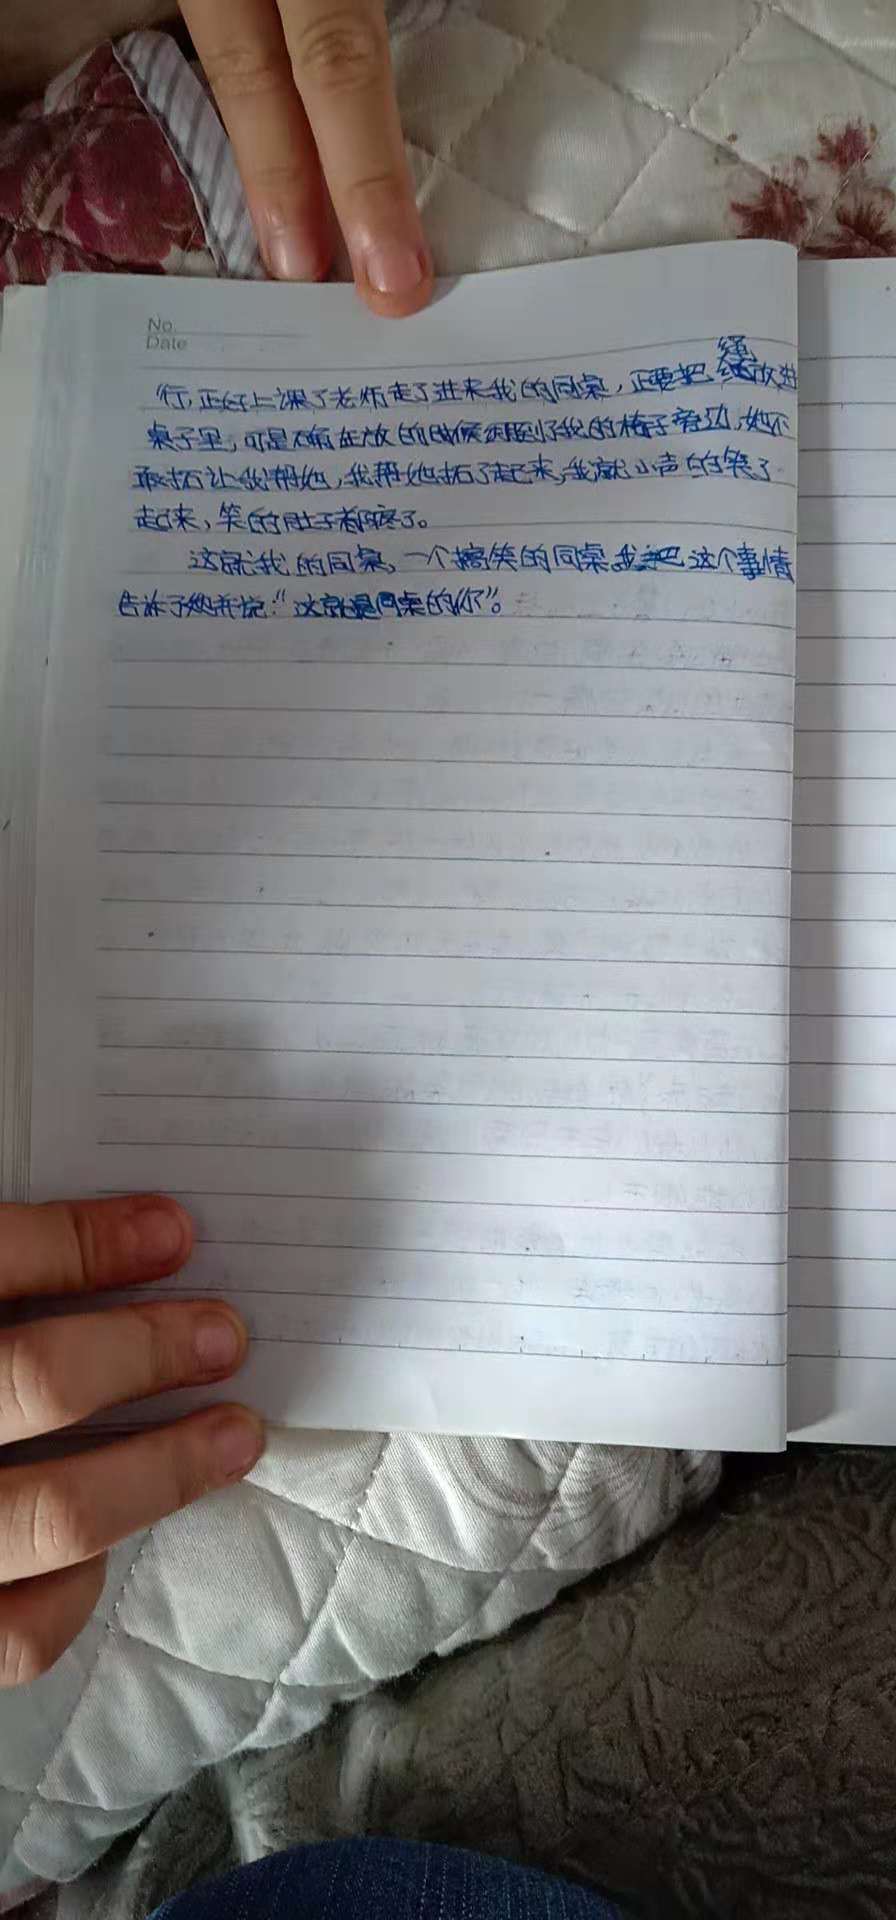 No.
Date
行,正好上课了老师走了进来我的同桌,正要把绳放进
桌子里,可是不在放的时候到了我的椅子旁边,她不
敢拓让我帮她,我帮她拓了起来,我就小声的笑了
起来,笑的肚子都疼了。
这就我的同桌,一个搞笑的同桌。我把这个事情
告诉了她并说:“这就是同桌的你”。